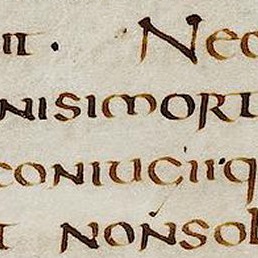 it · Nec
nisimori
coniuciiq
t nonsol